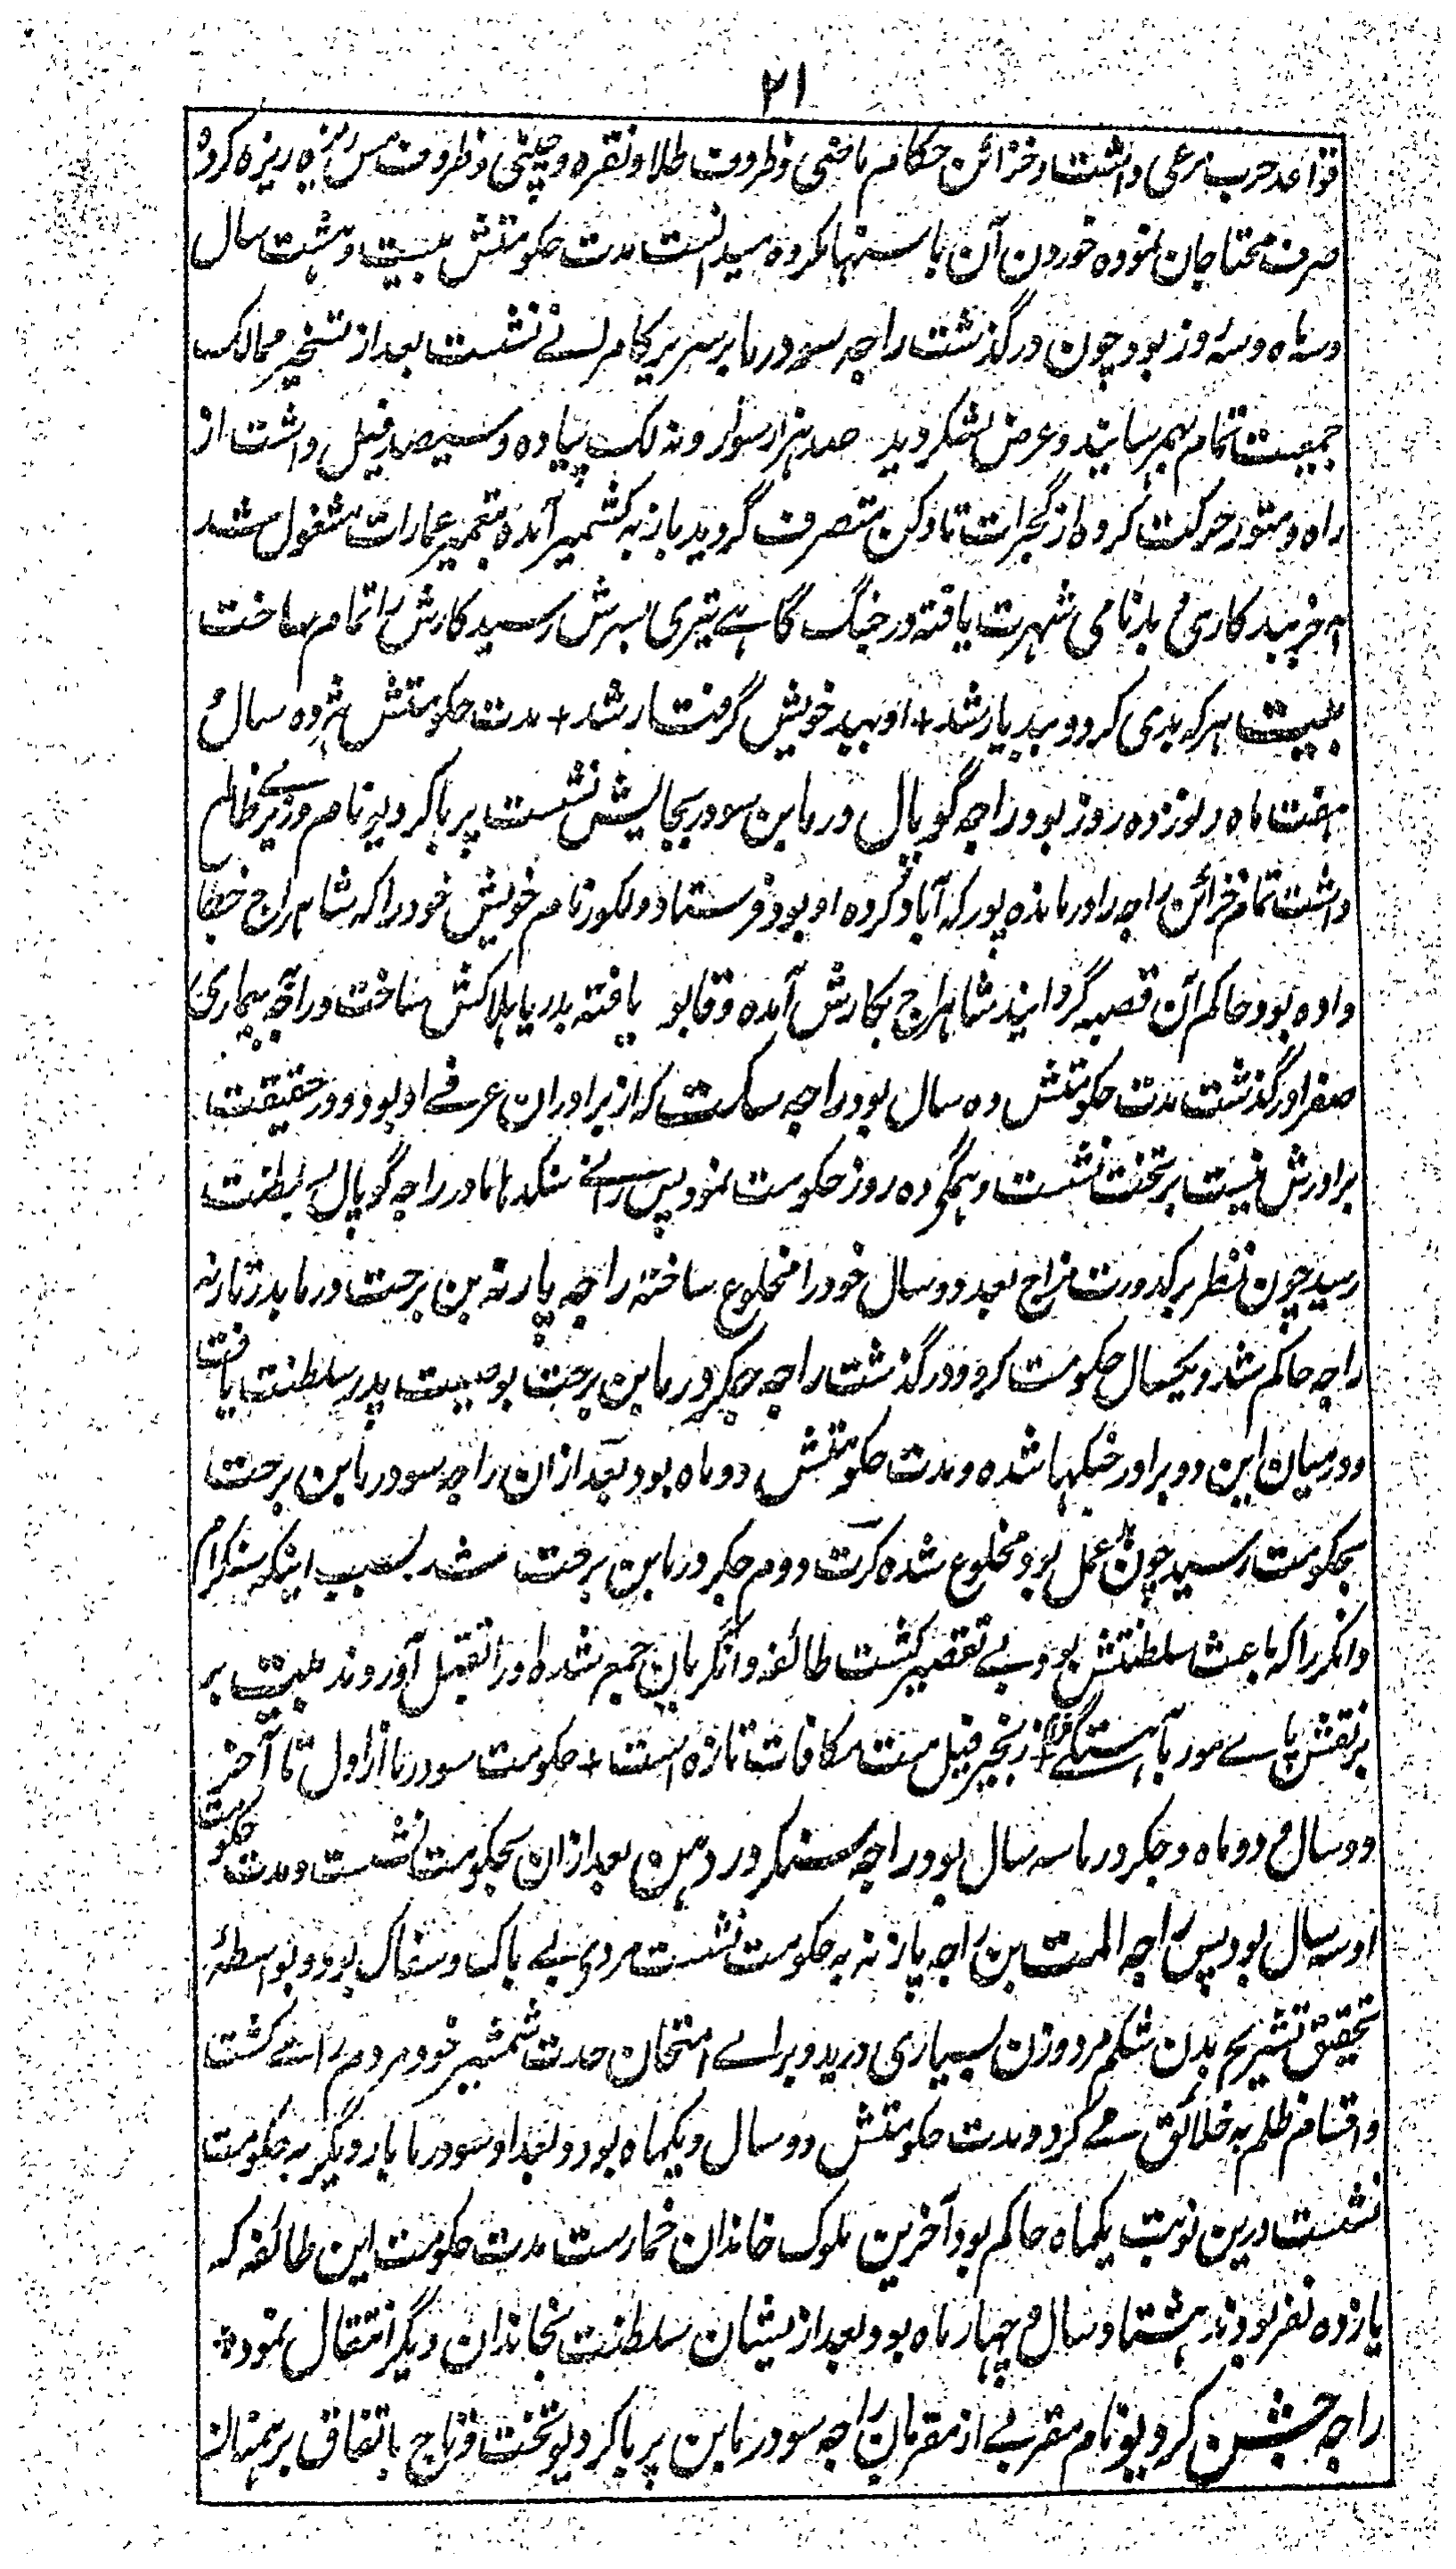 ۲۱
قواعد حرب مرعی داشت و خزائن حکام ماضی و ظروف طلا و نقره و چینی و ظروف مس ریزه ریزه کرده
صرف محتاجان نموده خوردن آن با سنهامکروه میدانست مدت حکومتش بیست و هشت سال
و سه ماه و سه روز بود چون درگذشت راجه سودرما بر سریر کامرانی نشست بعد از تسخیر ممالک
جمعیت تمام بهمرسانید و عرض لشکر دید صد هزار سوار و نه لک پیاده و سیصد فیل داشت از
راه دمتور حرکت کرده از گجرات تا دکن متصرف گردید باز به کشمیر آمده بتعمیر عمارات مشغول شد
به خربندکاری بدنامی شهرت یافته در جنگ گاهے تیری بسرش رسید کارش را تمام ساخت
بیت هر که بدی کرد و ببد یار شد + او ببد خویش گرفتار شد + مدت حکومتش هژده سال و
هفت ماه و نوزده روز بود راجه گوپال ورما بن سودر بجایش نشست پرباکر دیو نام وزیرے ظالم
داشت تمام خزائن راجه را در مانده پور که آباد کرده او بود فرستاد و لکور نام خویش خود را که شاهراج خطاب
داده بود حاکم آن قصبه گردانید شاهراج بکارش آمده و قابو یافته بدریا هلاکش ساخت و راجه به بیماری
صفرا درگذشت مدت حکومتش ده سال بود راجه سکت که از برادران عرفے او بود و در حقیقت
برادرش نیست بر تخت نشست و همگی ده روز حکومت نمود پس رانے سنکدها مادر راجه گوپال بسلطنت
رسید چون نظر بر کدورت مزاج بعد دو سال خود را مخلوع ساخته راجه پارته بن برجت ورما بدرتارنه
راجه حاکم شد و یکسال حکومت کرد و درگذشت راجه چکرورما بن برجت بوصیت پدر سلطنت یافت
و درمیان این دو برادر جنگها شده و مدت حکومتش دو ماه بود بعد از آن راجه سودرما بن برجت
بحکومت رسید چون بدعمل بود مخلوع شده کرت دوم چکرورما بن برجت شد بسبب اینکه سنکرام
دانکر را که باعث سلطنتش بود بے تقصیر کشت طائفه دانگریان جمع شده او را بقتل آوردند بیت بر
بر نقش پاے مور بآهستگے گذر + زنجیر فیل مست مکافات تازه است + حکومت سودرما از اول تا آخر
دو سال و دو ماه و چکرورما سه سال بود راجه سنکرور دهن بعد از آن بحکومت نشست و مدت حکومت
او سه سال بود پس راجه المت بن راجه پارته به حکومت نشست مردی بے باک و سفاک بود و بواسطۂ
تحقیق تشریح بدن شکم مرد و زن بسیاری درید و براے امتحان حدت شمشیر خود مردم را مے کشت
و اقسام ظلم به خلائق مے کرد و مدت حکومتش دو سال و یکماه بود و بعد او سودرما بار دیگر به حکومت
نشست درین نوبت یکماه حاکم بود آخرین ملوک خاندان خمارست مدت حکومت این طائفه که
یازده نفر بودند هشتاد سال و چهار ماه بود و بعد ازیشان سلطنت بخاندان دیگر انتقال نموده
راجه جشن کر دیو نام مقربے از مقربان راجه سودرما بن پرباکر دیو تخت و تاج باتفاق برهمنان